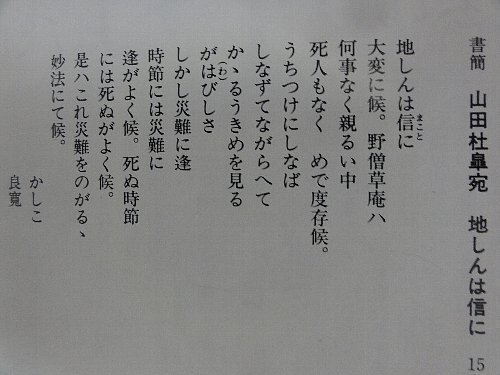 書簡　山田杜皐宛　地しんは信に　15
地しんは信に
まこと
大変に候。野僧草庵ハ
何事なく親るい中
死人もなく　めで度存候。
うちつけにしなば
しなずてながらへて
かゝるうきめを見る
がはびしさ
（わ）
しかし災難に逢
時節には災難に
逢がよく候。死ぬ時節
には死ぬがよく候。
是ハこれ災難をのがるゝ
妙法にて候。
かしこ
良寛